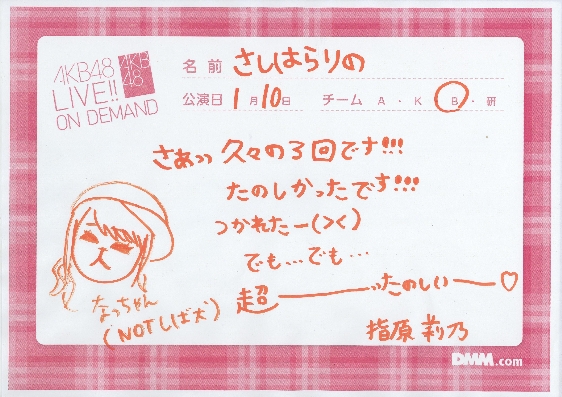 AKB48
LIVE!!
ON DEMAND
AKB
48
名前 さしはらりの
公演日 1月10日 チーム A・K・B・研
さぁっっ 久々の3回です!!!
たのしかったです!!!
つかれたー(><)
でも…でも…
超――――ったのしい――♡
なっちゃん
(NOTしば犬)
指原莉乃
DMM.com